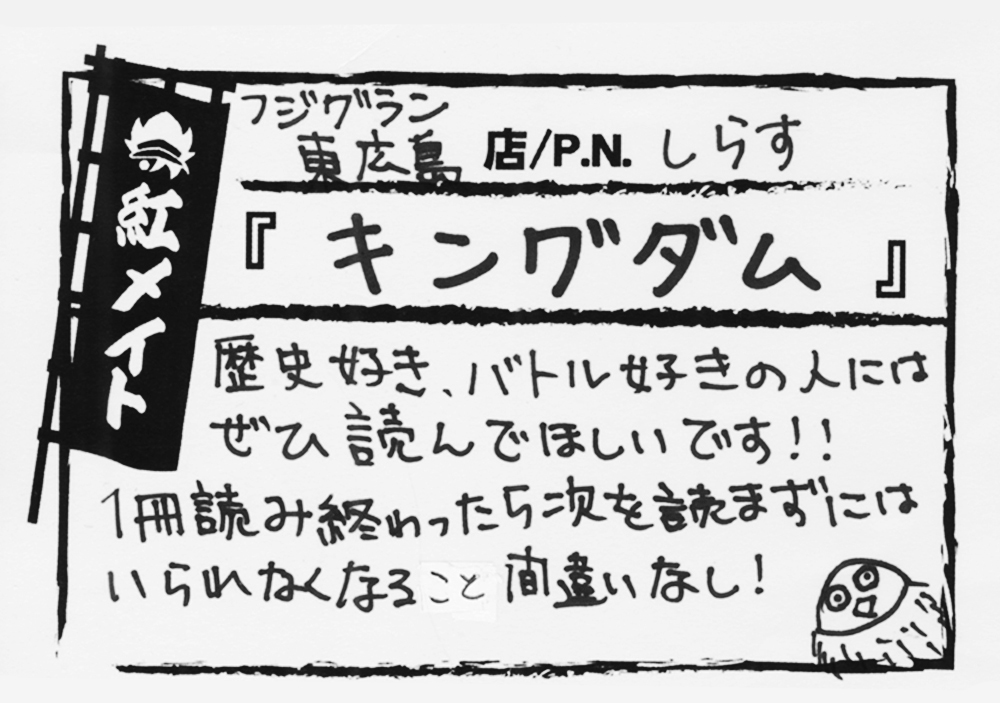 紅メイト
フジグラン
東広島 店/P.N. しらす
『キングダム』
歴史好き、バトル好きの人には
ぜひ読んでほしいです!!
1冊読み終わったら次を読まずには
いられなくなること間違いなし!